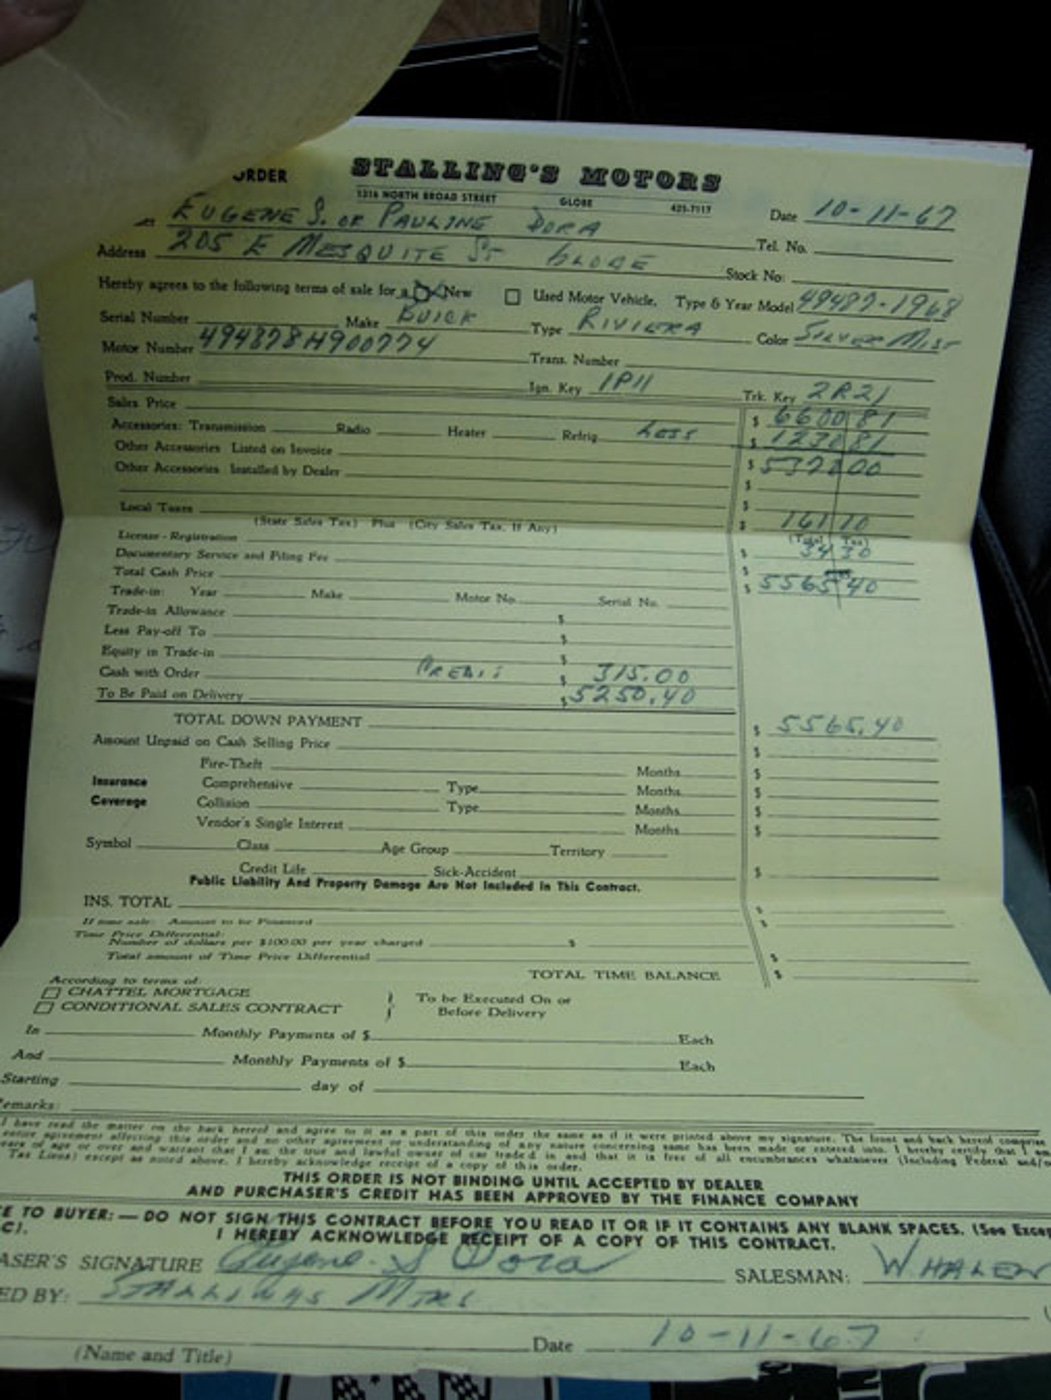 ORDER STALLING'S MOTORS
1316 NORTH BROAD STREET GLOBE 425-7117
EUGENE S. OR PAULINE DORA Date 10-11-67
Address 205 E MESQUITE ST GLOBE Tel. No.
Stock No:
Hereby agrees to the following terms of sale for a New Used Motor Vehicle. Type & Year Model 49487-1968
Serial Number Make BUICK Type RIVIERA Color SILVER MIST
Motor Number 494878H900774 Trans. Number
Prod. Number Ign. Key 1P11 Trk. Key 2R21
Sales Price $ 6600 81
Accessories: Transmission Radio Heater Refrig. LESS $ 1272 81
Other Accessories Listed on Invoice $ 5328 00
Other Accessories Installed by Dealer $
$
Local Taxes $ 161 10
(State Sales Tax) Plus (City Sales Tax, If Any) (Total Tax)
License - Registration $ 34 30
Documentary Service and Filing Fee $
Total Cash Price $ 5565 40
Trade-in: Year Make Motor No. Serial No.
Trade-in Allowance $
Less Pay-off To $
Equity in Trade-in $
Cash with Order CREDIT $ 315.00
To Be Paid on Delivery $ 5250.40
TOTAL DOWN PAYMENT $ 5565.40
Amount Unpaid on Cash Selling Price $
Fire-Theft Months $
Insurance Comprehensive Type Months $
Coverage Collision Type Months $
Vendor's Single Interest Months $
Symbol Class Age Group Territory
Credit Life Sick-Accident $
Public Liability And Property Damage Are Not Included In This Contract.
INS. TOTAL $
If time sale: Amount to be Financed $
Time Price Differential:
Number of dollars per $100.00 per year charged $
Total amount of Time Price Differential $
TOTAL TIME BALANCE $
According to terms of:
CHATTEL MORTGAGE To be Executed On or
CONDITIONAL SALES CONTRACT Before Delivery
In Monthly Payments of $ Each
And Monthly Payments of $ Each
Starting day of
emarks:
I have read the matter on the back hereof and agree to it as a part of this order the same as if it were printed above my signature. The front and back hereof comprise
entire agreement affecting this order and no other agreement or understanding of any nature concerning same has been made or entered into. I hereby certify that I am
ears of age or over and warrant that I am the true and lawful owner of car traded in and that it is free of all encumbrances whatsoever (Including Federal and/o
Tax Liens) except as noted above. I hereby acknowledge receipt of a copy of this order.
THIS ORDER IS NOT BINDING UNTIL ACCEPTED BY DEALER
AND PURCHASER'S CREDIT HAS BEEN APPROVED BY THE FINANCE COMPANY
E TO BUYER: — DO NOT SIGN THIS CONTRACT BEFORE YOU READ IT OR IF IT CONTAINS ANY BLANK SPACES. (See Excep
C). I HEREBY ACKNOWLEDGE RECEIPT OF A COPY OF THIS CONTRACT.
ASER'S SIGNATURE Eugene S Dora SALESMAN: WHALEN
ED BY: STALLINGS MTRS
Date 10-11-67
(Name and Title)